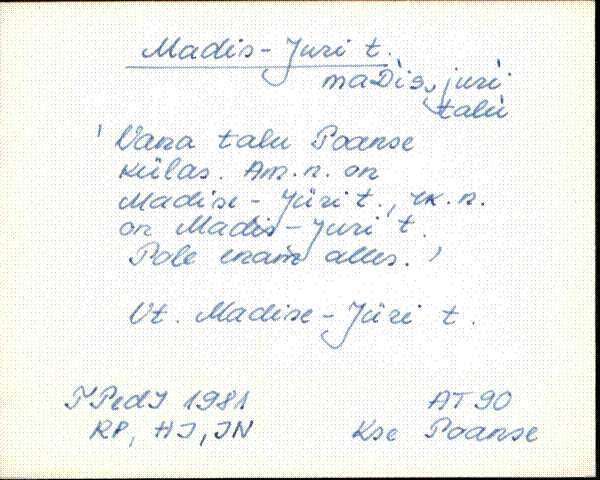 Madis-Juri t.
maDis, juri
talu
' Vana talu Paanse
külas. Am.n. on
Madise-Jüri t., rk.n.
on Madis-Juri t.
Pole enam alles. '
Vt. Madise-Jüri t.
TPedI 1981
AT 90
RP, HJ, JN
Kse Paanse